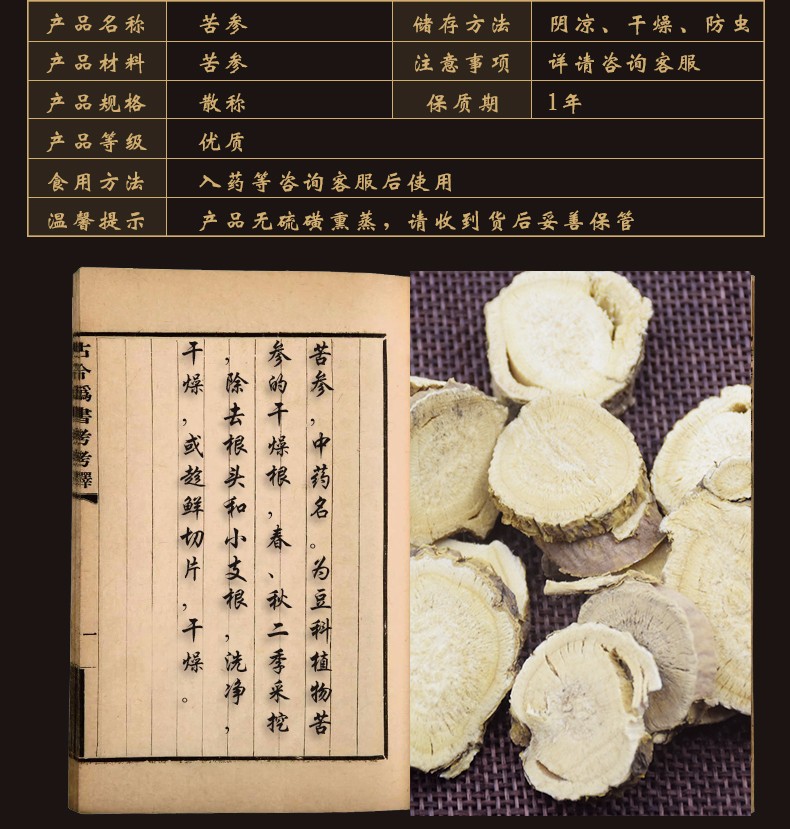 产品名称 苦参 储存方法 阴凉、干燥、防虫
产品材料 苦参 注意事项 详请咨询客服
产品规格 散称 保质期 1年
产品等级 优质
食用方法 入药等咨询客服后使用
温馨提示 产品无硫磺熏蒸，请收到货后妥善保管
苦参，中药名。为豆科植物苦
参的干燥根，春、秋二季采挖
，除去根头和小支根，洗净，
干燥，或趁鲜切片，干燥。
古今偽書考考釋
一